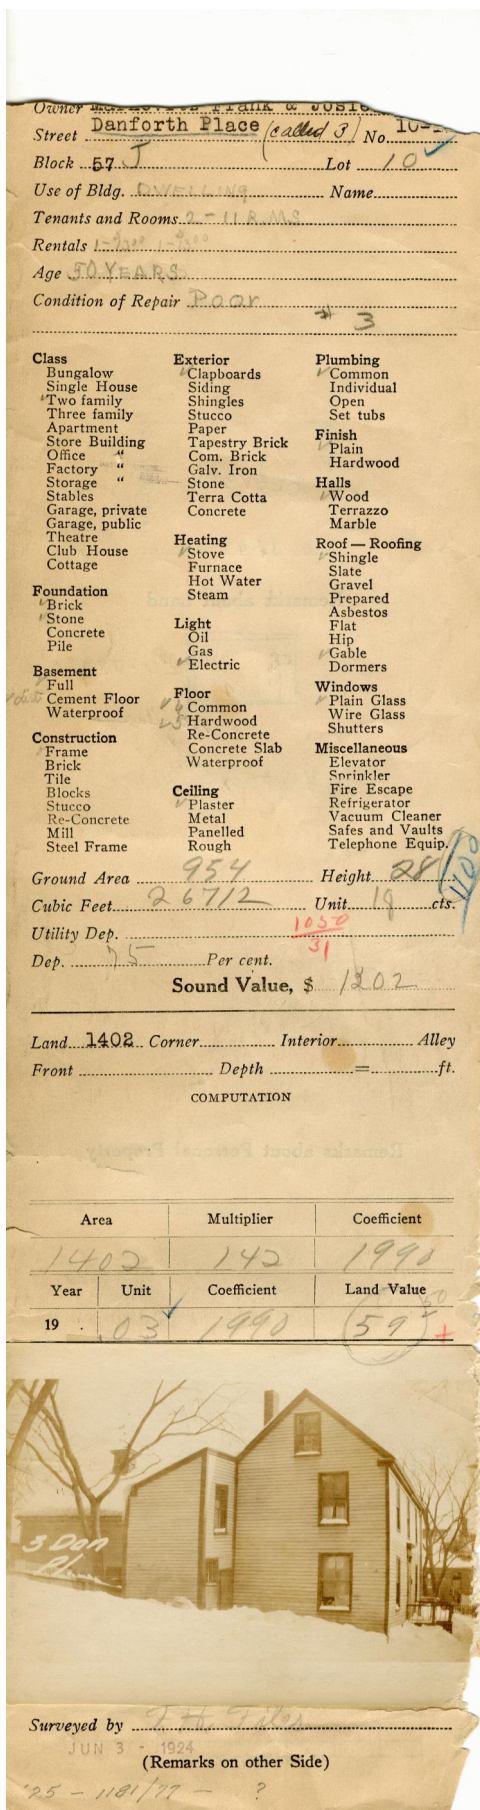 Owner Markovitz Frank & Josie
Street Danforth Place (called 3) No. 10-1
Block 57 J Lot 10
Use of Bldg. DWELLING Name
Tenants and Rooms 2-11 RMS
Rentals
Age 50 YEARS
Condition of Repair Poor
# 3
Class
Bungalow
Single House
Two family
Three family
Apartment
Store Building
Office "
Factory "
Storage "
Stables
Garage, private
Garage, public
Theatre
Club House
Cottage
Foundation
Brick
Stone
Concrete
Pile
Basement
Full
Cement Floor
Waterproof
Construction
Frame
Brick
Tile
Blocks
Stucco
Re-Concrete
Mill
Steel Frame
Exterior
Clapboards
Siding
Shingles
Stucco
Paper
Tapestry Brick
Com. Brick
Galv. Iron
Stone
Terra Cotta
Concrete
Heating
Stove
Furnace
Hot Water
Steam
Light
Oil
Gas
Electric
Floor
6 Common
5 Hardwood
Re-Concrete
Concrete Slab
Waterproof
Ceiling
Plaster
Metal
Panelled
Rough
Plumbing
Common
Individual
Open
Set tubs
Finish
Plain
Hardwood
Halls
Wood
Terrazzo
Marble
Roof — Roofing
Shingle
Slate
Gravel
Prepared
Asbestos
Flat
Hip
Gable
Dormers
Windows
Plain Glass
Wire Glass
Shutters
Miscellaneous
Elevator
Sprinkler
Fire Escape
Refrigerator
Vacuum Cleaner
Safes and Vaults
Telephone Equip.
Ground Area 954 Height 28
1100
Cubic Feet 26712 Unit 18 cts.
Utility Dep. 1050
31
Dep. 75 Per cent.
Sound Value, $ 1202
Land 1402 Corner Interior Alley
Front Depth = ft.
COMPUTATION
Area Multiplier Coefficient
1402 142 1990
Year Unit Coefficient Land Value
19 .03 1990 59
50
3 Dan
Place
Surveyed by F. H. Files
JUN 3 - 1924
(Remarks on other Side)
'25 - 1181/77 - ?